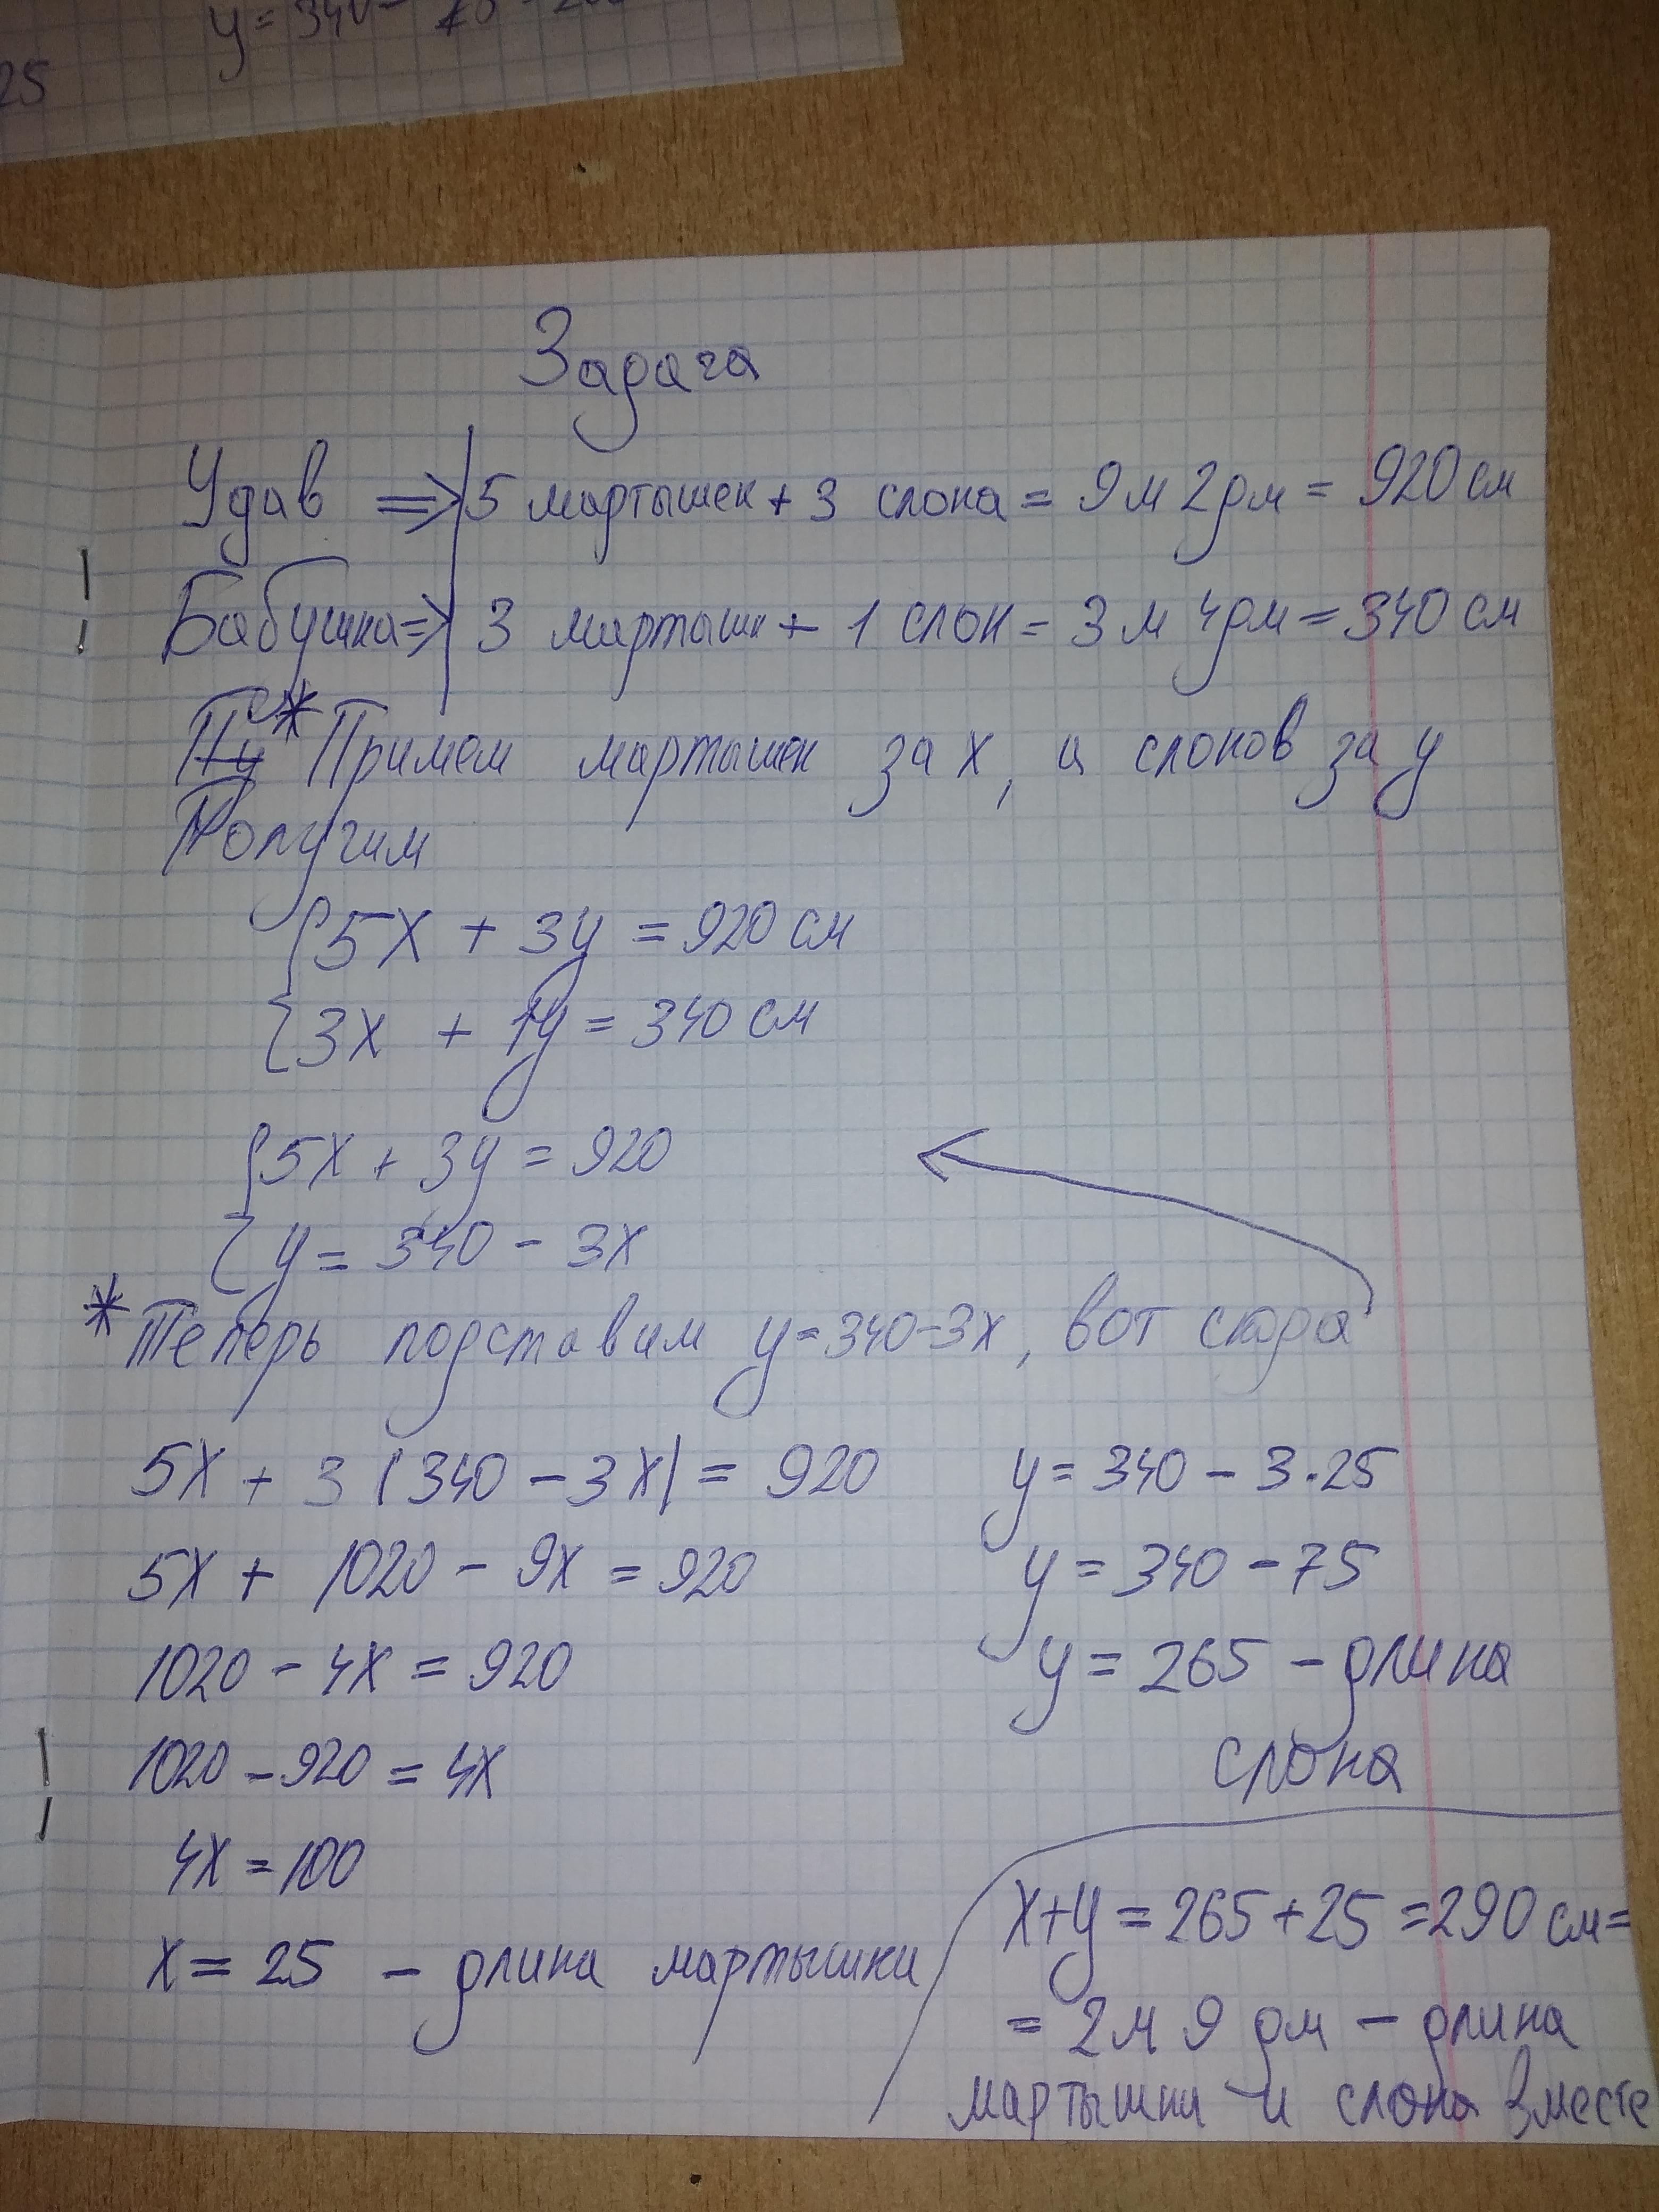 y = 340 -
25
Задача
Удав => 5 мартышек + 3 слона = 9 м 2 дм = 920 см
Бабушка => 3 мартышк + 1 слон = 3 м 4 дм = 340 см
* Примем мартышек за x, а слонов за y
Получим
5x + 3y = 920 см
3x + 1y = 340 см
5x + 3y = 920
y = 340 - 3x
* Теперь подставим y = 340 - 3x, вот сюда
5x + 3 (340 - 3x) = 920
5x + 1020 - 9x = 920
1020 - 4x = 920
1020 - 920 = 4x
4x = 100
x = 25 - длина мартышки
y = 340 - 3·25
y = 340 - 75
y = 265 - длина
слона
x+y = 265 + 25 = 290 см =
= 2 м 9 дм - длина
мартышки и слона вместе